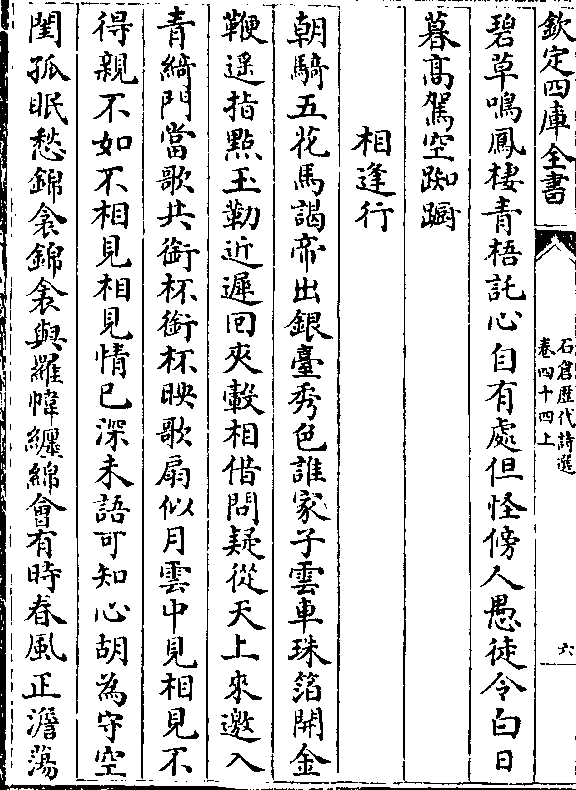 欽定四庫全書
石倉歷代詩選
卷四十四上
六
碧草鳴鳳棲青梧託心自有處但怪傍人愚徒令白日
暮高駕空踟蹰
相逢行
朝騎五花馬謁帝出銀臺秀色誰家子雲車珠箔開金
鞭遥指點玉勒近遲回夾轂相借問疑從天上來邀入
青綺門當歌共銜杯銜杯映歌扇似月雲中見相見不
得親不如不相見相見情已深未語可知心胡為守空
閨孤眠愁錦衾錦衾與羅幃纏綿會有時春風正澹蕩